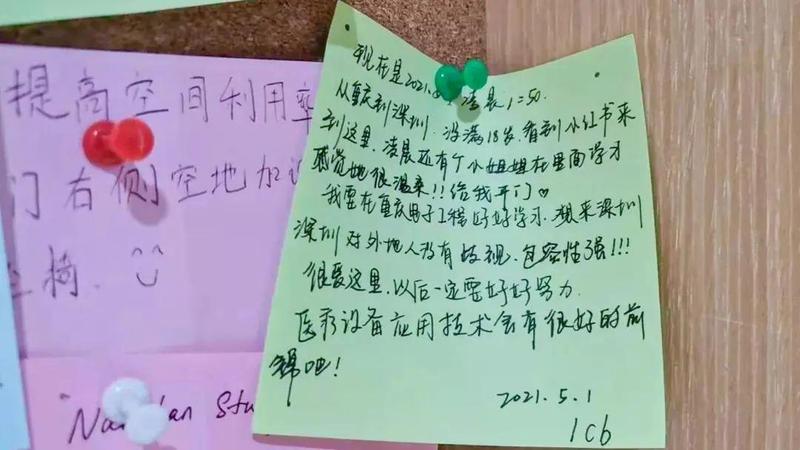 提高空间利用率
门右侧空地加
椅.
Stu
现在是2021. 凌晨1:50.
从重庆到深圳.没满18岁.看到小红书来
到这里.凌晨还有个小姐姐在里面学习
感觉她很温柔!!给我开门♡
我要在重庆电子工程好好学习.想来深圳
深圳对外地人没有歧视.包容性强!!!
很爱这里.以后一定要好好努力.
医疗设备应用技术会有很好的前
锦吧!
2021.5.1
lcb